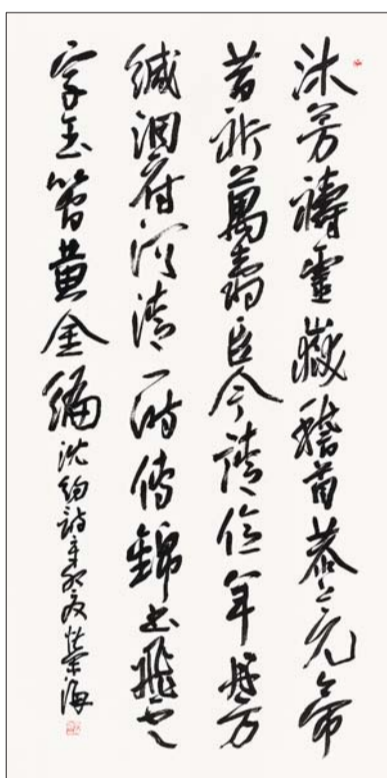 沐芳禱靈嶽稽首恭上元帝
昔祈萬壽臣今請億年丹方
緘洞府河清一时傳錦書飛雲
字玉簡黃金編 沈約詩辛卯夏榮海